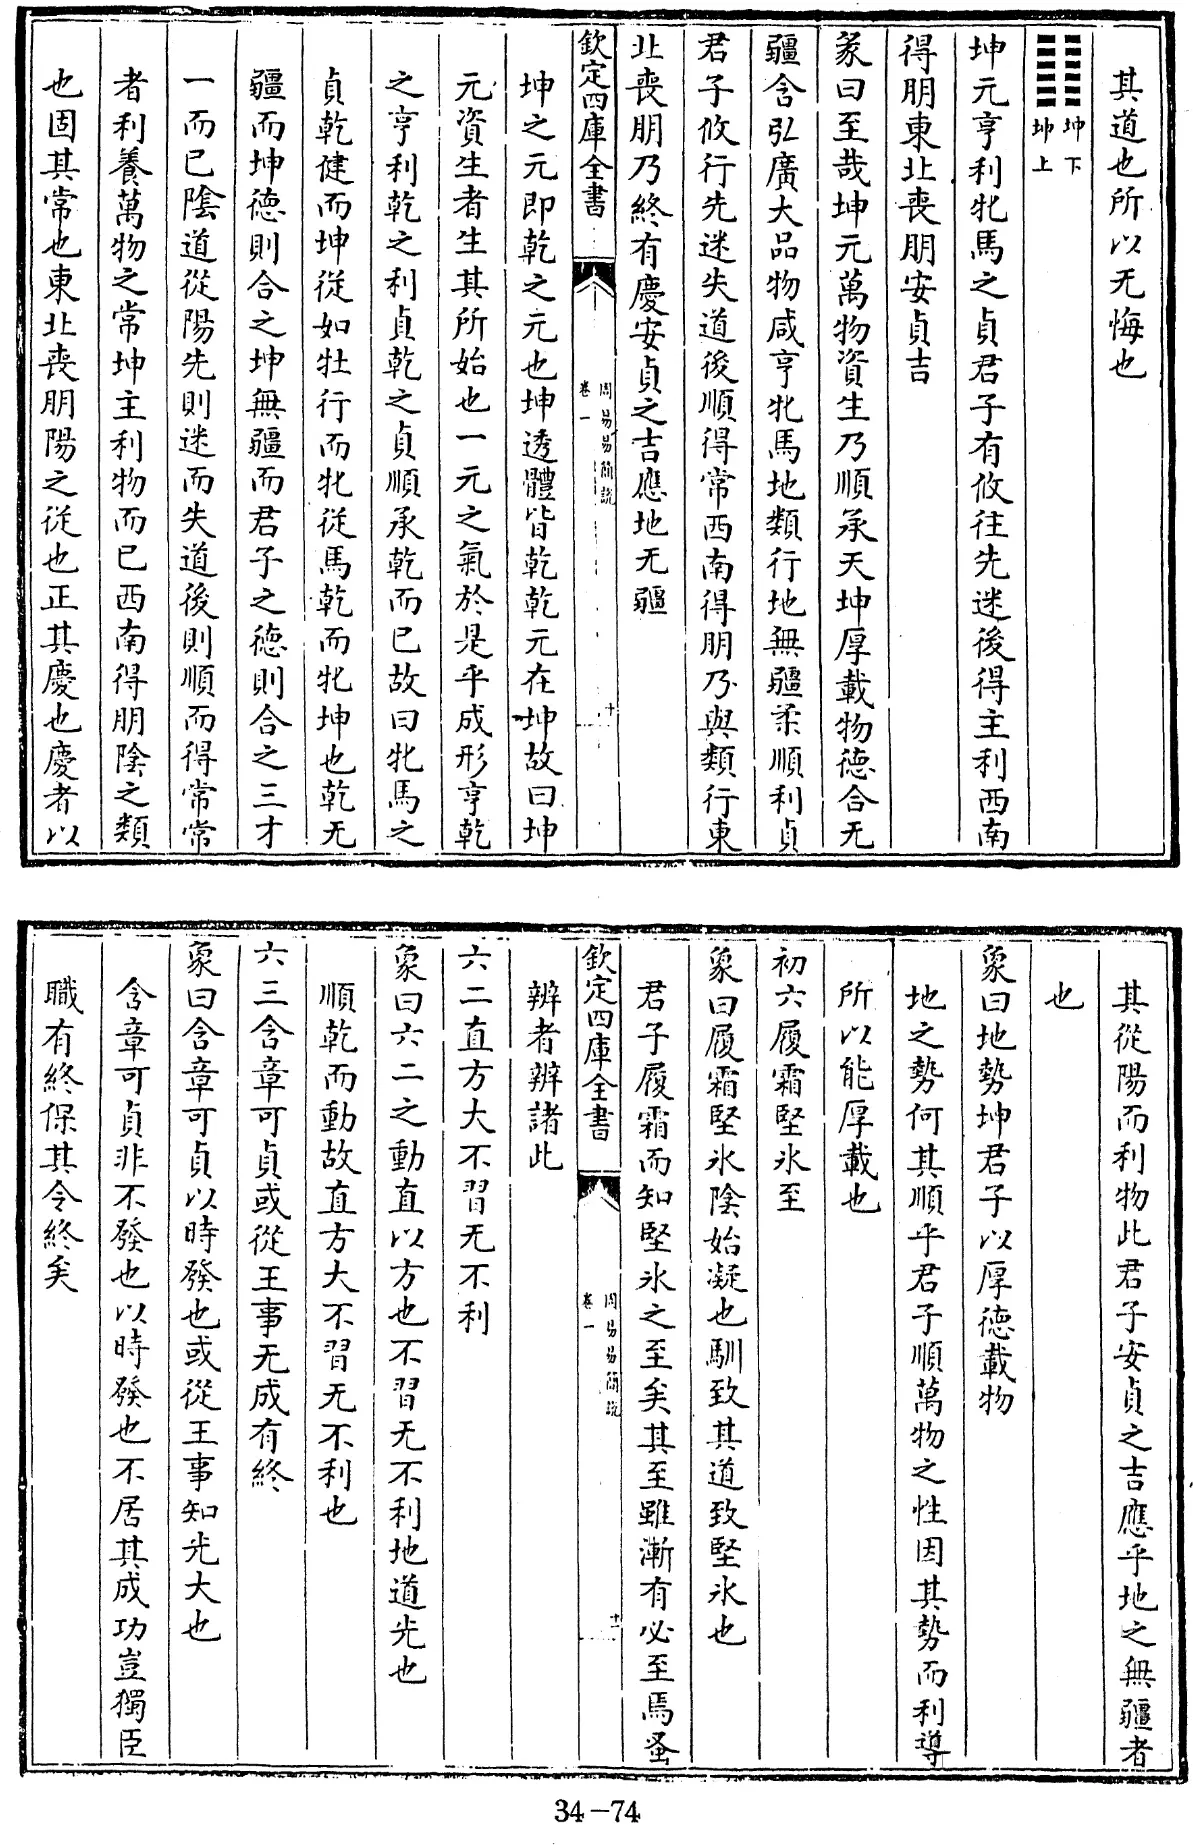 其道也所以无悔也
坤下
坤上
坤元亨利牝馬之貞君子有攸往先迷後得主利西南
得朋東北喪朋安貞吉
彖曰至哉坤元萬物資生乃順承天坤厚載物德合无
疆含弘廣大品物咸亨牝馬地類行地無疆柔順利貞
君子攸行先迷失道後順得常西南得朋乃與類行東
北喪朋乃終有慶安貞之吉應地无疆
欽定四庫全書
周易易簡說
卷一
十
坤之元即乾之元也坤透體皆乾乾元在坤故曰坤
元資生者生其所始也一元之氣於是乎成形亨乾
之亨利乾之利貞乾之貞順承乾而已故曰牝馬之
貞乾健而坤從如牡行而牝從馬乾而牝坤也乾无
疆而坤德則合之坤無疆而君子之德則合之三才
一而已陰道從陽先則迷而失道後則順而得常常
者利養萬物之常坤主利物而已西南得朋陰之類
也固其常也東北喪朋陽之從也正其慶也慶者以
其從陽而利物此君子安貞之吉應乎地之無疆者
也
象曰地勢坤君子以厚德載物
地之勢何其順乎君子順萬物之性因其勢而利導
所以能厚載也
初六履霜堅氷至
象曰履霜堅氷陰始凝也馴致其道致堅氷也
君子履霜而知堅氷之至矣其至雖漸有必至焉蚤
欽定四庫全書
周易易簡說
卷一
十一
辨者辨諸此
六二直方大不習无不利
象曰六二之動直以方也不習无不利地道光也
順乾而動故直方大不習无不利也
六三含章可貞或從王事无成有終
象曰含章可貞以時發也或從王事知光大也
含章可貞非不發也以時發也不居其成功豈獨臣
職有終保其令終矣
34-74